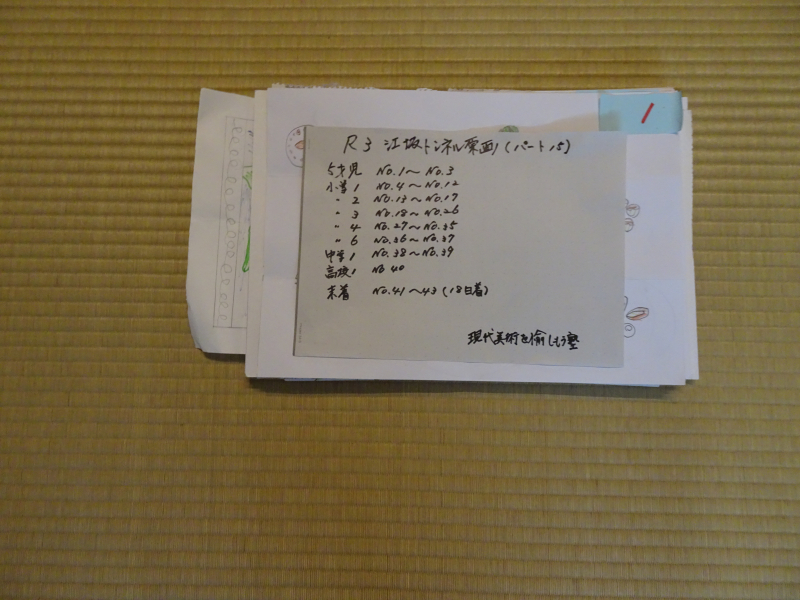 R3 江坂トンネル原画（パート15）
5才児 No.1〜No.3
小学1 No.4〜No.12
〃 2 No.13〜No.17
〃 3 No.18〜No.26
〃 4 No.27〜No.35
〃 6 No.36〜No.37
中学1 No.38〜No.39
高校1 No 40
未着 No.41〜43（18日着）
現代美術を愉しもう塾
1